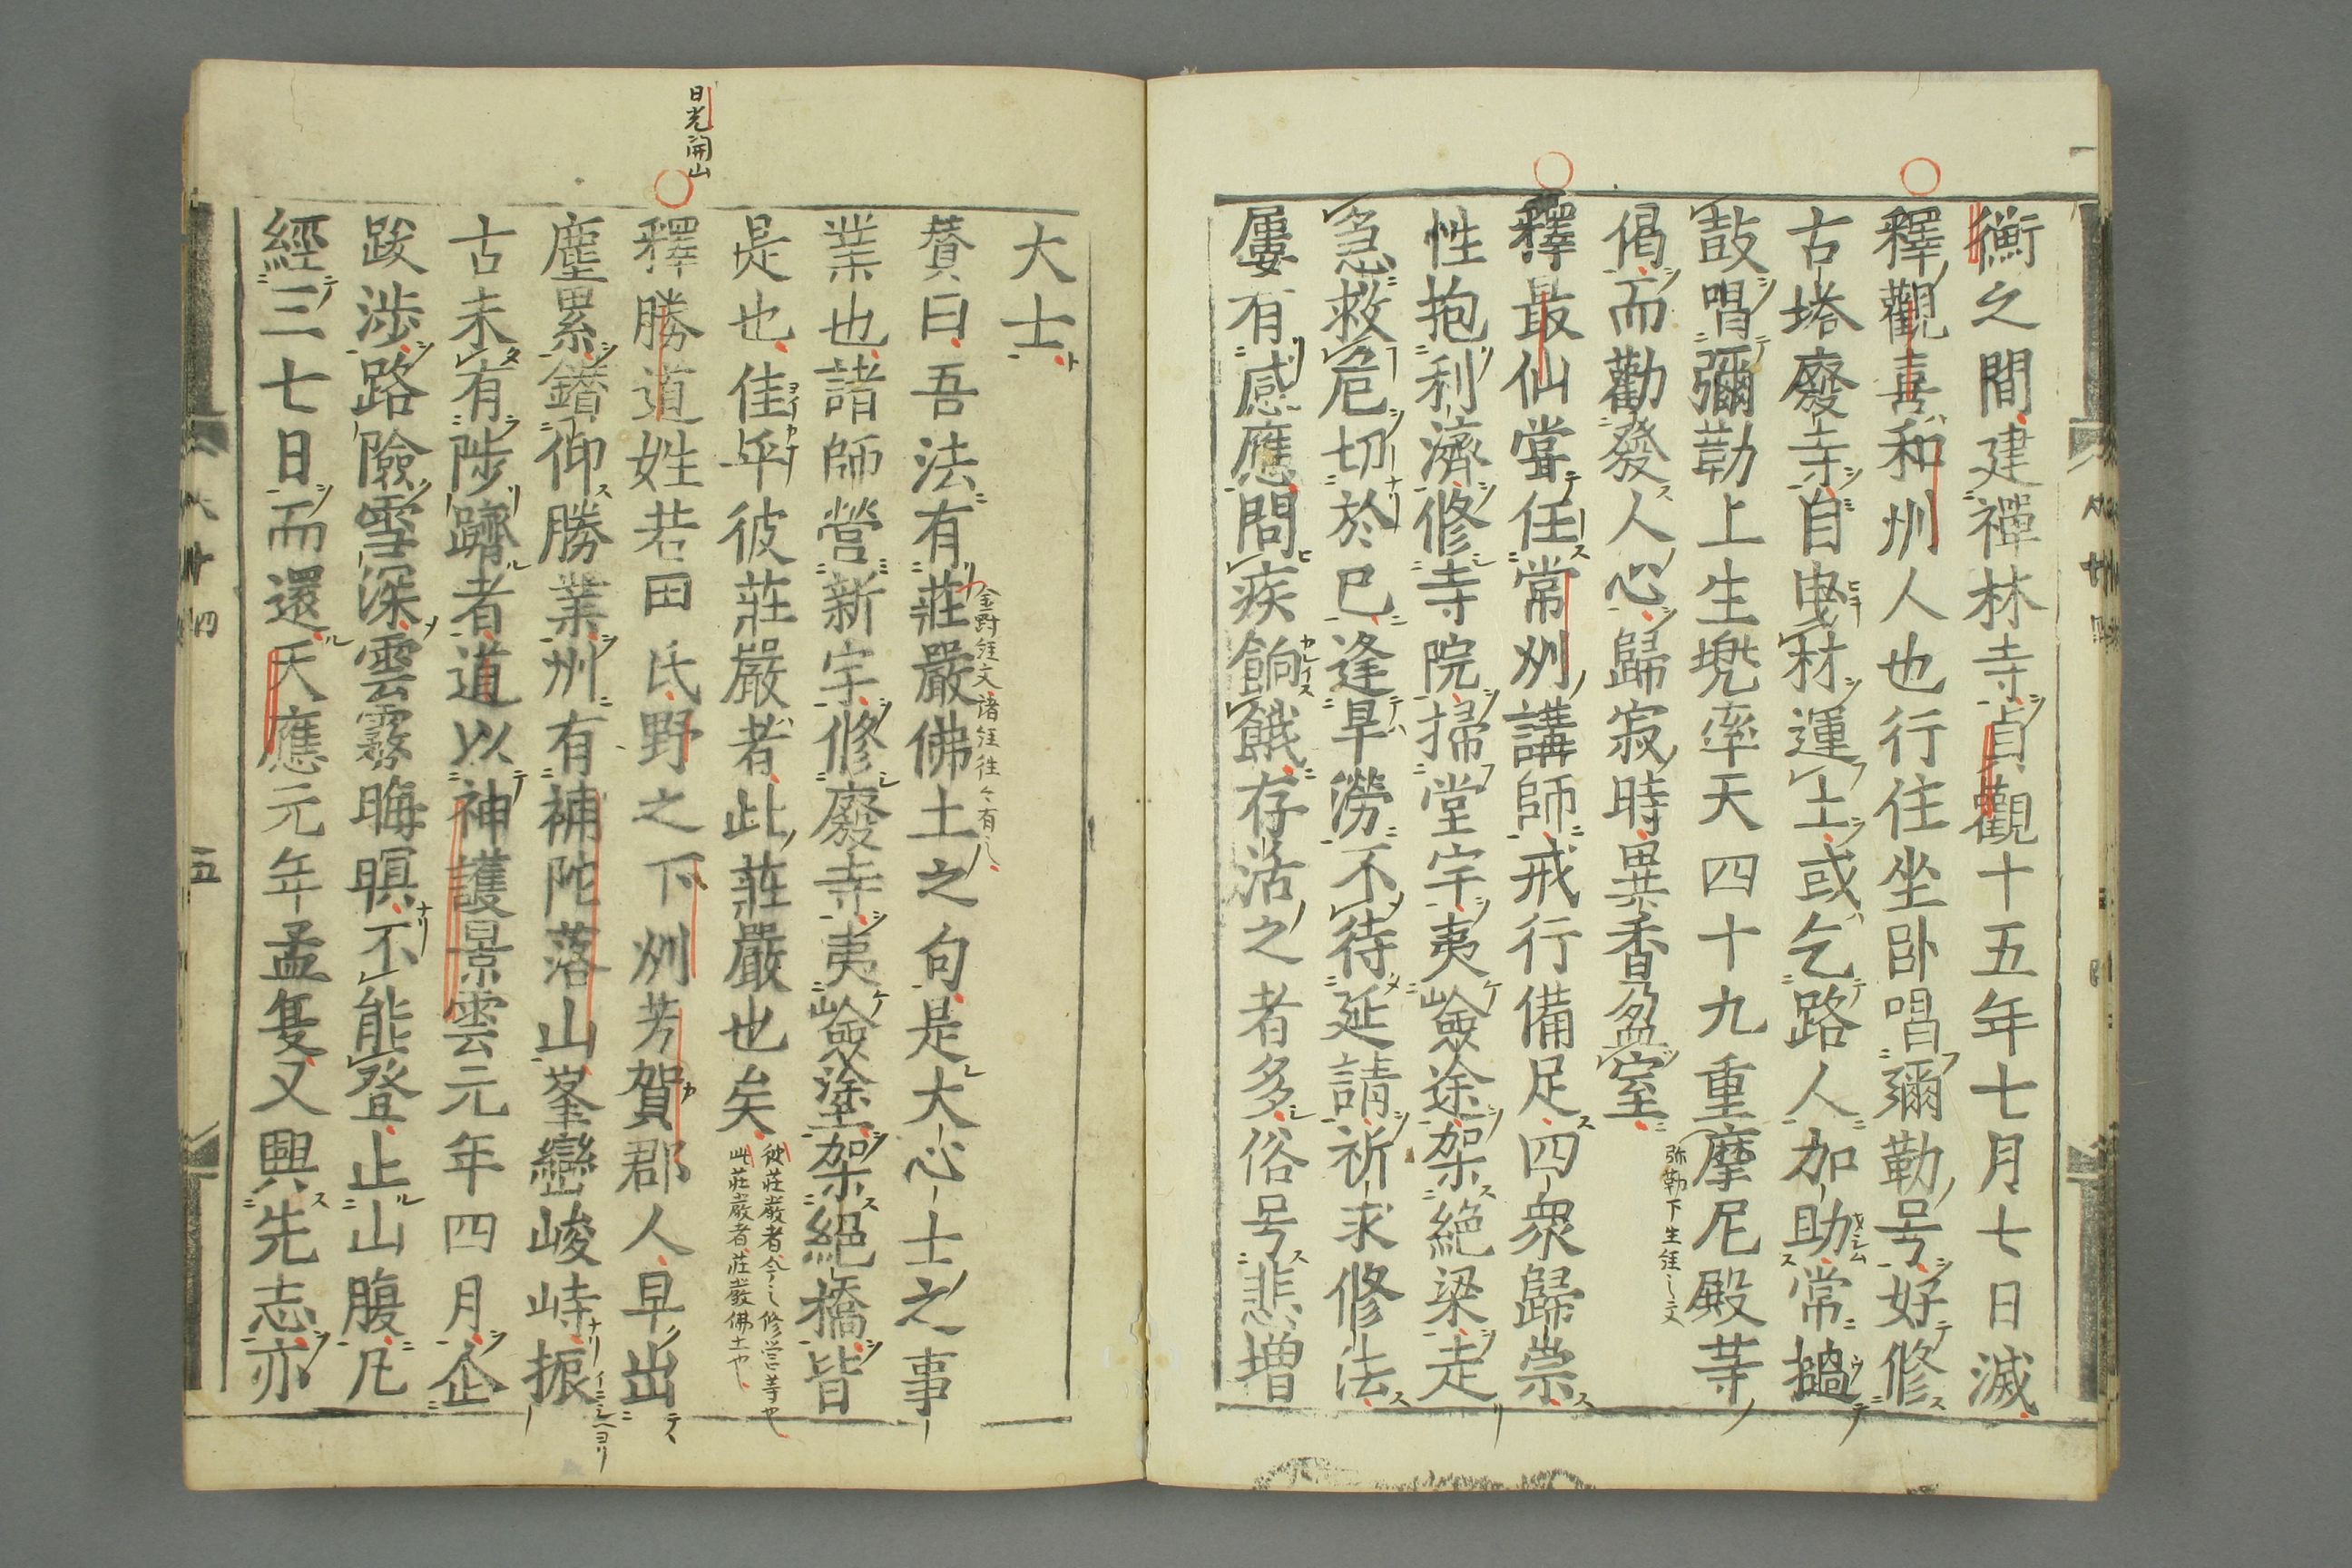 衡之間建禪林寺貞觀十五年七月七日滅
釋觀喜和州人也行住坐卧唱彌勒号好修
古塔廢寺自曳材運土或乞路人加助常搥
鼓唱彌勒上生兜率天四十九重摩尼殿䒭
偈而勸發人心歸寂時異香盈室
弥勒下生経之文
釋最仙嘗任常州講師戒行備足四衆歸崇
性抱利濟修寺院掃堂宇夷嶮途架絶梁走
急救危切於己逢旱澇不待延請祈求修法
屢有感應問疾餉餓存活之者多俗号悲増
大士
賛曰吾法有莊嚴佛土之句是大心士之事
金剛経文諸経往々有之
業也諸師營新宇修廢寺夷嶮塗架絶橋皆
是也佳乎彼莊嚴者此莊嚴也矣
彼莊嚴者今之修営等也
此莊嚴者莊嚴佛土也
日光開山
釋勝道姓若田氏野之下州芳賀郡人早出
塵累鑚仰勝業州有補陀落山峯巒峻峙振
古未有陟躋者道以神護景雲元年四月企
跋渉路險雪深雲霧晦暝不能登止山腹凡
經三七日而還天應元年孟夏又興先志亦
五